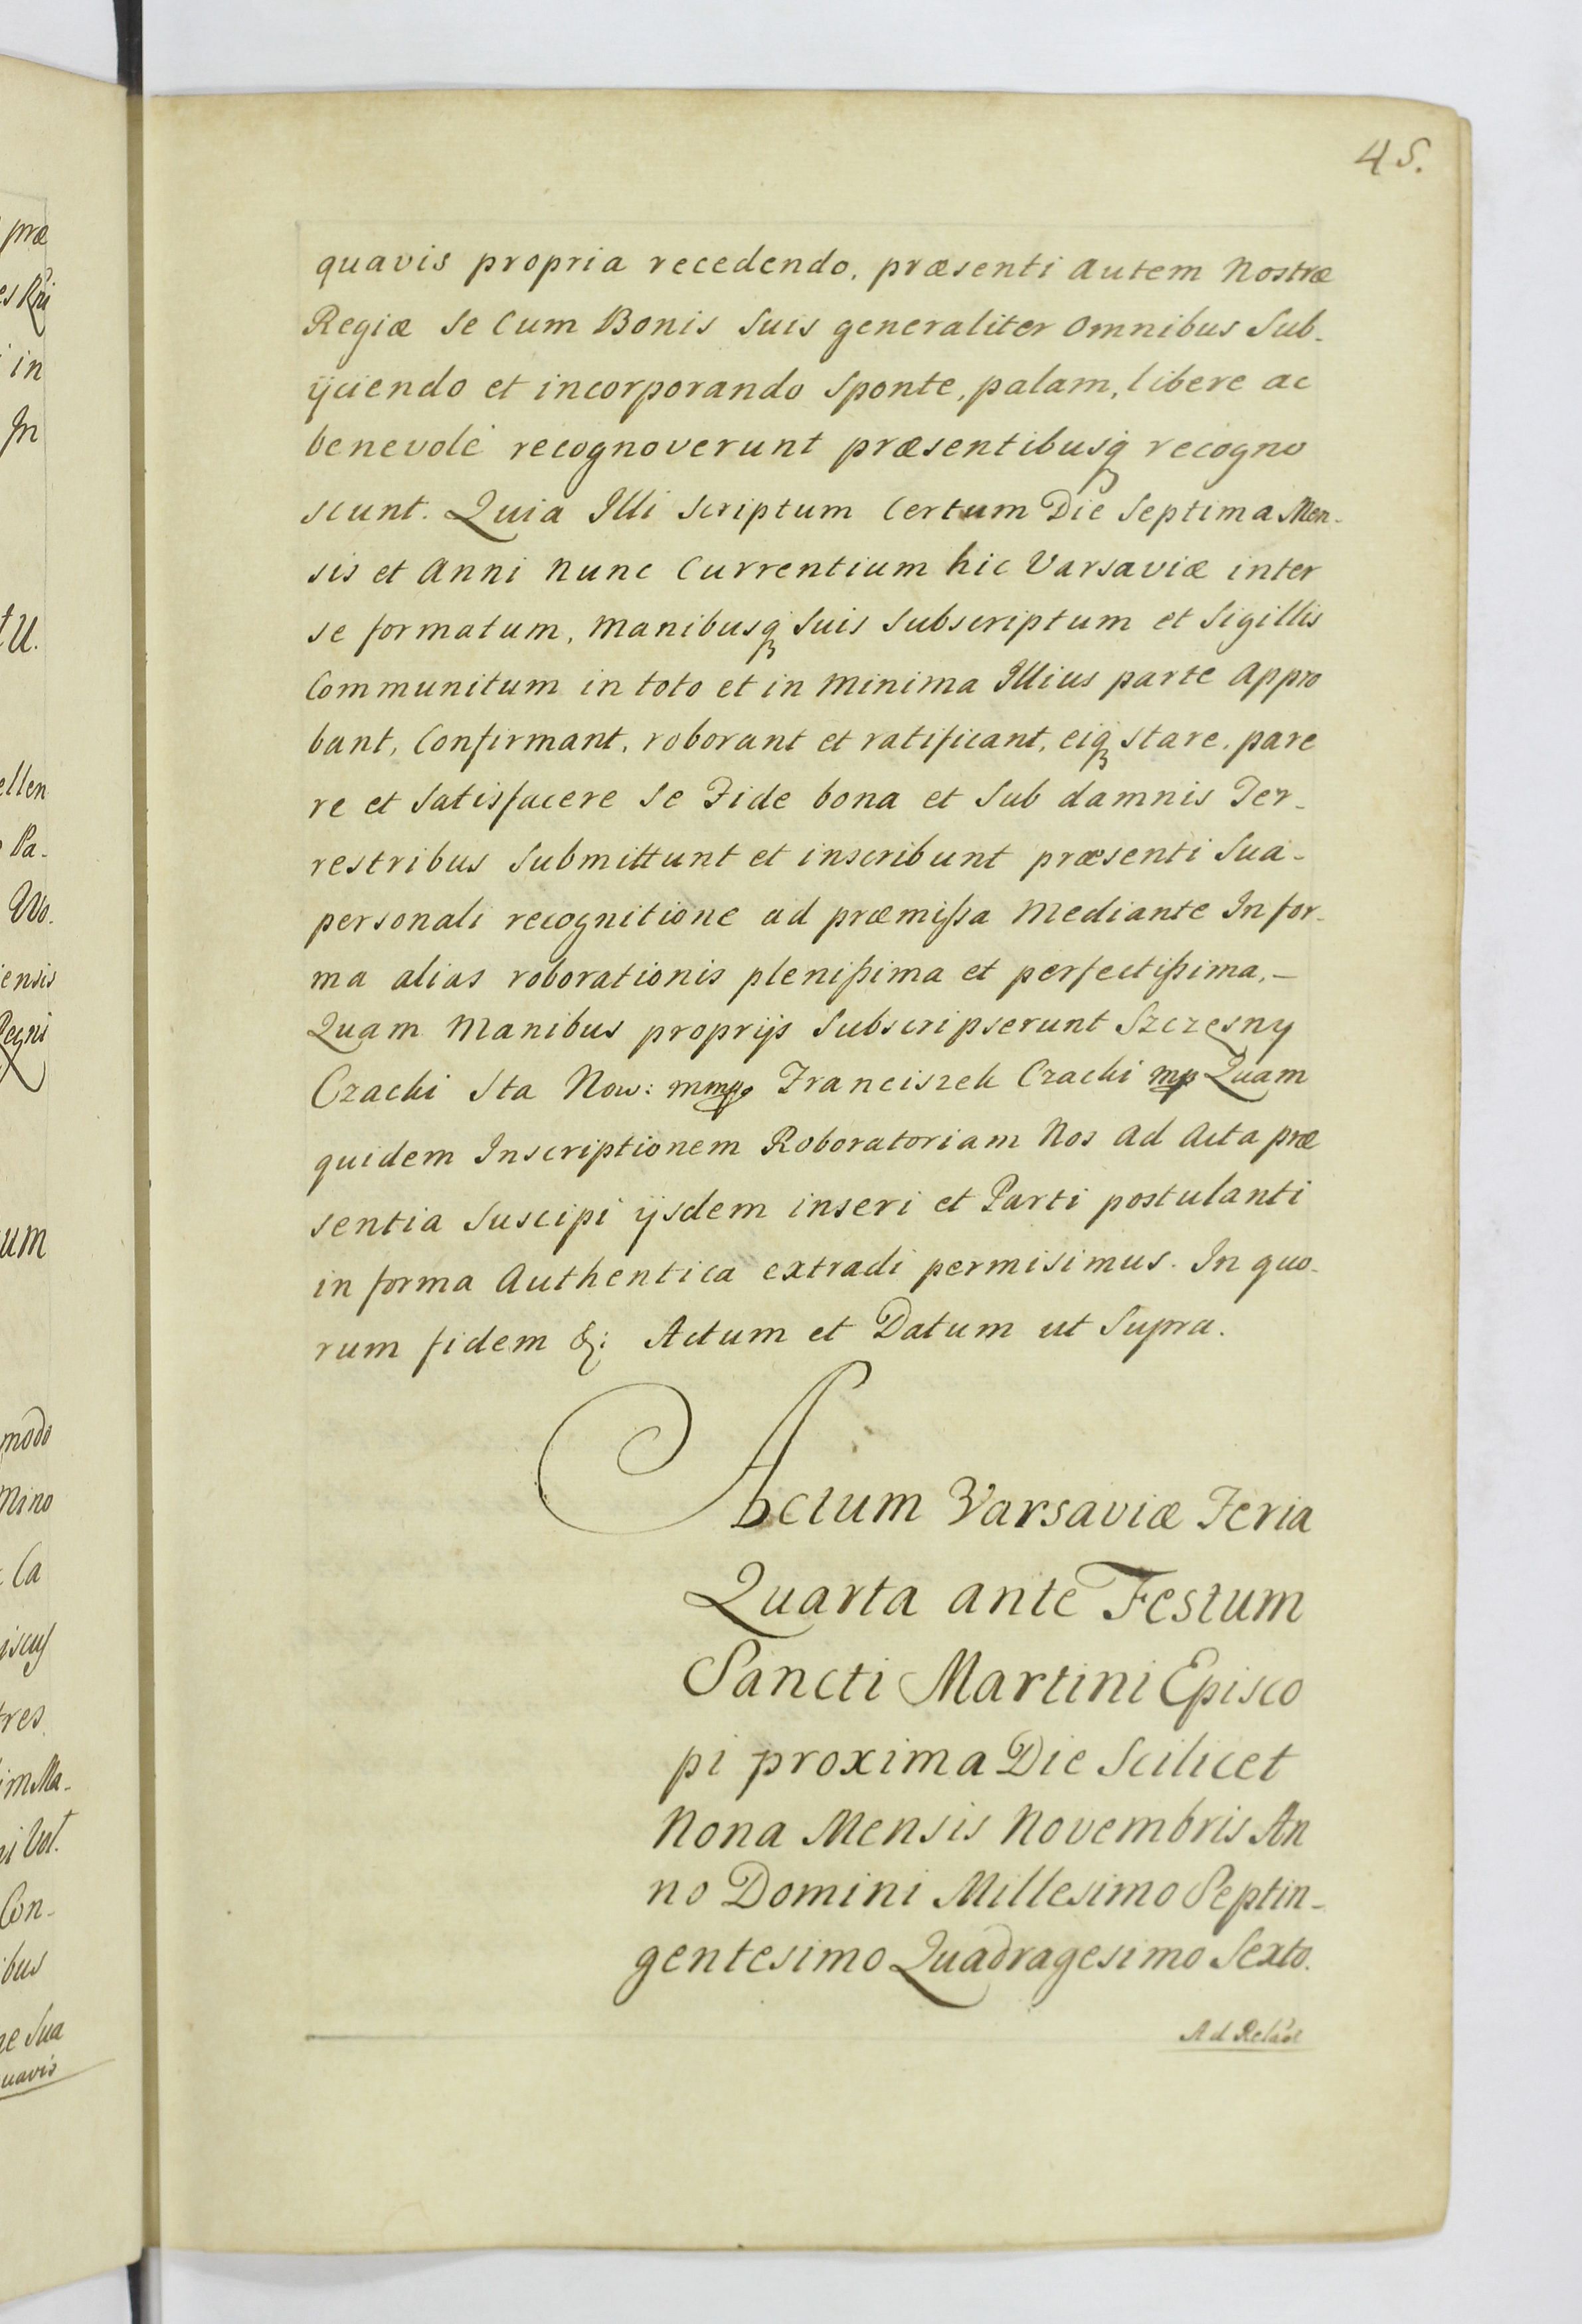 45.
quavis propria recedendo, præsenti autem Nostræ
Regiæ se cum Bonis suis generaliter omnibus sub-
ijciendo et incorporando sponte, palam, libere ac
benevolè recognoverunt præsentibusq́ recogno
scunt. Quia Illi scriptum certum Die septima Men-
sis et Anni nunc currentium hic Varsaviæ inter
se formatum, manibusq́ suis subscriptum et sigillis
communitum in toto et in minima Illius parte appro
bant, confirmant, roborant et ratificant, eiq́ stare, pare
re et satisfacere se Fide bona et sub damnis Ter-
restribus submittunt et inscribunt præsenti sua-
personali recognitione ad præmißa mediante In for-
ma alias roborationis plenißima et perfectißima,-
Quam manibus proprijs subscripserunt Szczęsny
Czacki Sta Now: mmpp Franciszek Czacki mp Quam
quidem Inscriptionem Roboratoriam Nos ad Acta præ
sentia suscipi ijsdem inseri et Parti postulanti
in forma Authentica extradi permisimus. In quo-
rum fidem &: Actum et Datum ut supra.
Actum Varsaviæ Feria
Quarta ante Festum
Sancti Martini Episco
pi proxima Die scilicet
Nona Mensis Novembris An
no Domini Millesimo Septin-
gentesimo Quadragesimo Sexto.
Ad Relãõ
præ
in
In
tu.
ellen
Pa-
Wo.
ensis
Regni
um
modo
mino
Ca
tres
Con-
ibus
ne sua
uavis